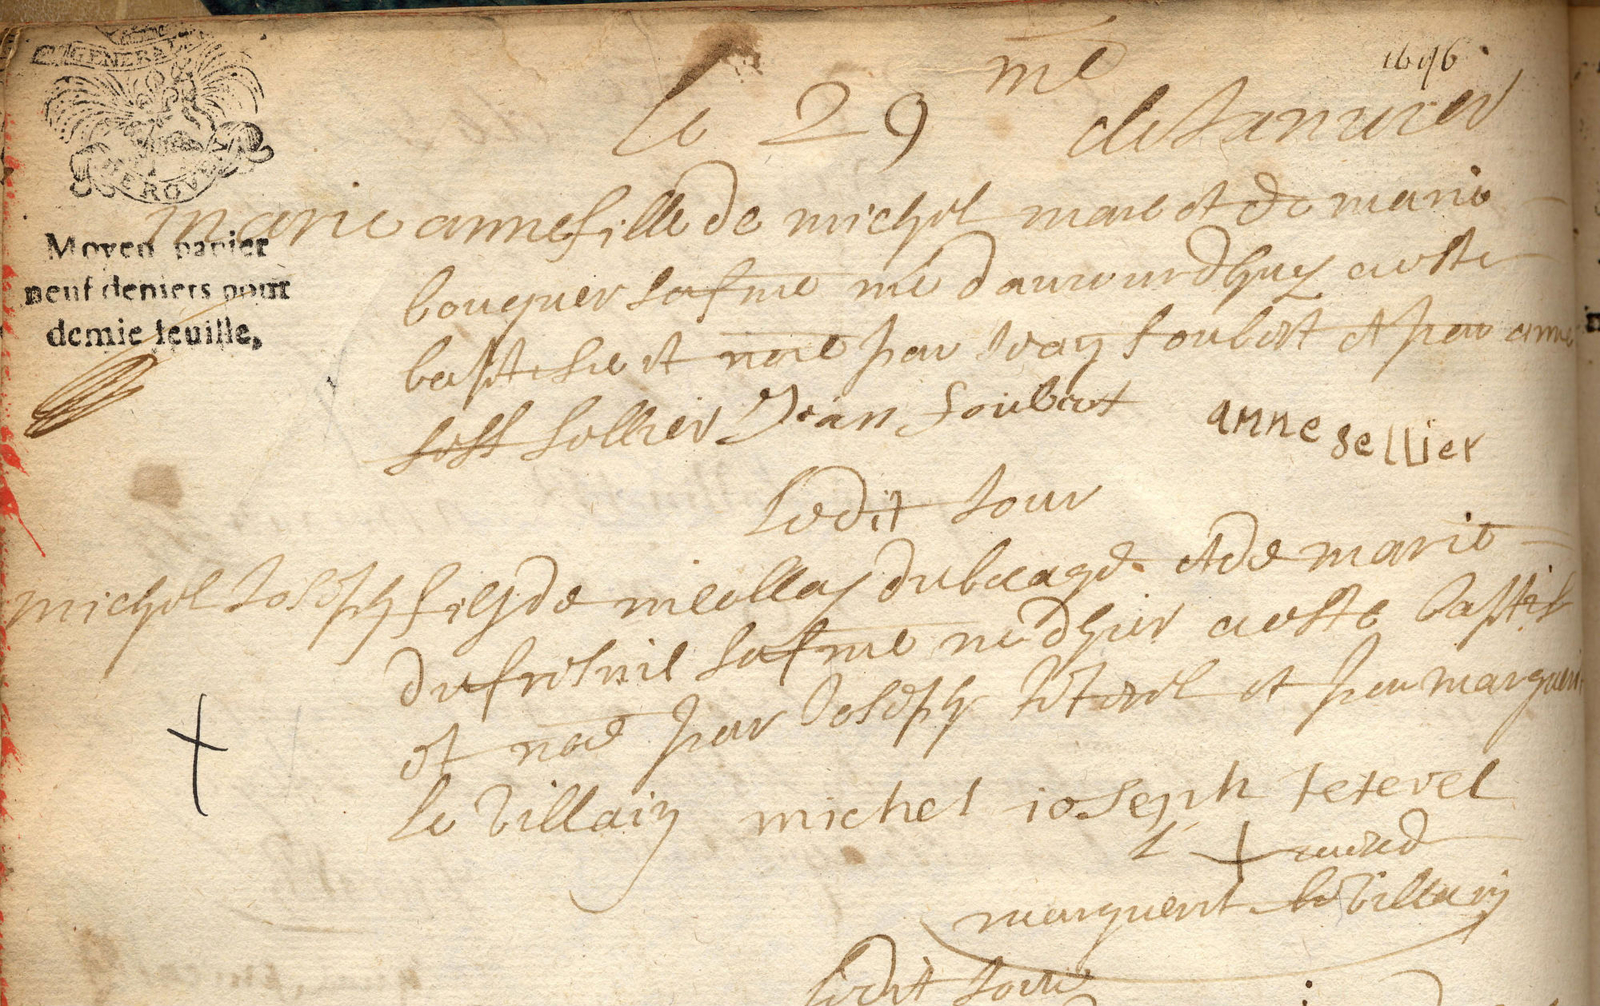 GENERAL
1696
Le 29 me de Januier
Moyen papier
neuf deniers pour
demie feuille,
marie anne fille de michel mare et de marie
bouquer sa fme née d'auiourdhuy a este
baptisée et nōe par Jean Joubert et par anne
sellier Jean Joubert anne sellier
Ledit Jour
michel Joseph fils de nicollas dubocage et de marie
dufresnil sa fme né d'hier a este baptisé
et nōe par Joseph tetevel et par marguerit
le Villain michel ioseph tetevel
marguerit le Villain
Ledit Jour